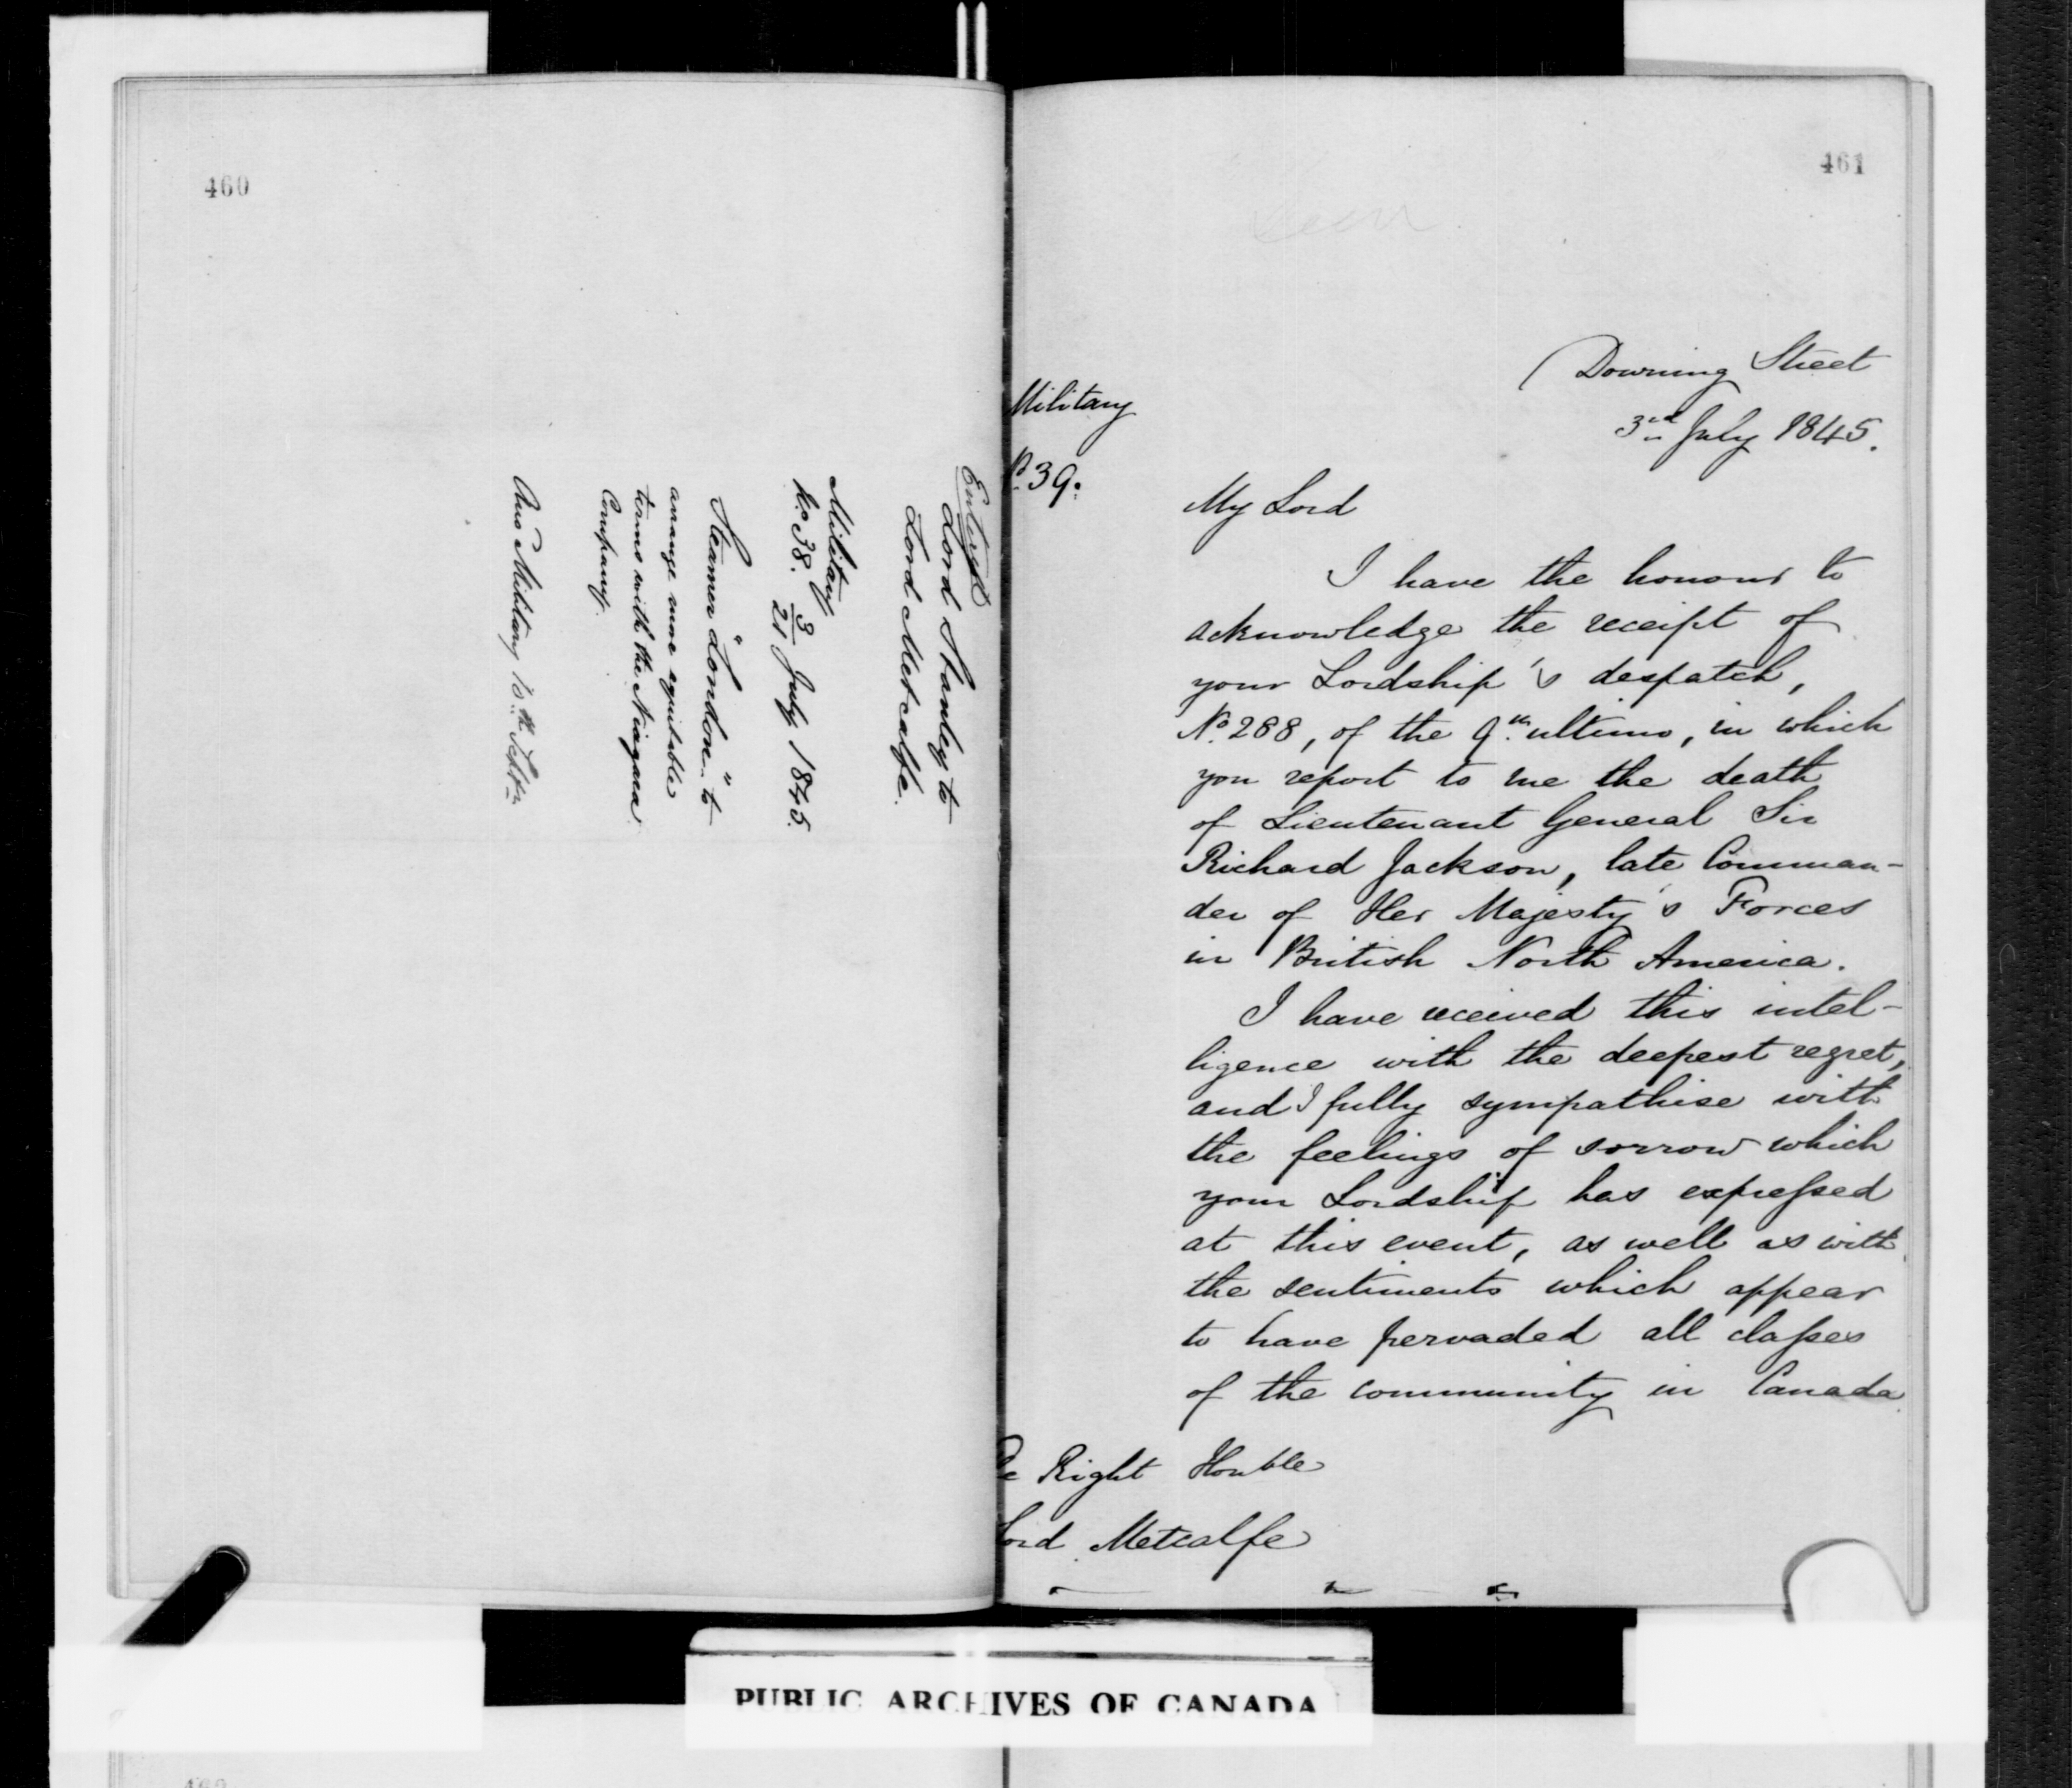 460
Enterd
Lord Stanley to
Lord Metcalfe.
Military
No 38. 3/21 July 1845.
Steamer "London" to
arrange more equitable
terms with the Niagara
Company.
Ans Military 10th
461
Downing Street
3rd July 1845.
Military
No. 39.
My Lord
I have the honour to
acknowledge the receipt of
your Lordship's despatch,
No. 288, of the 9th ultimo, in which
you report to me the death
of Lieutenant General Sir
Richard Jackson, late Comman-
der of Her Majesty's Forces
in British North America.
I have received this intel-
ligence with the deepest regret,
and I fully sympathise with
the feelings of sorrow which
your Lordship has expressed
at this event, as well as with
the sentiments which appear
to have pervaded all classes
of the community in Canada
Right Honble
Lord Metcalfe
PUBLIC ARCHIVES OF CANADA